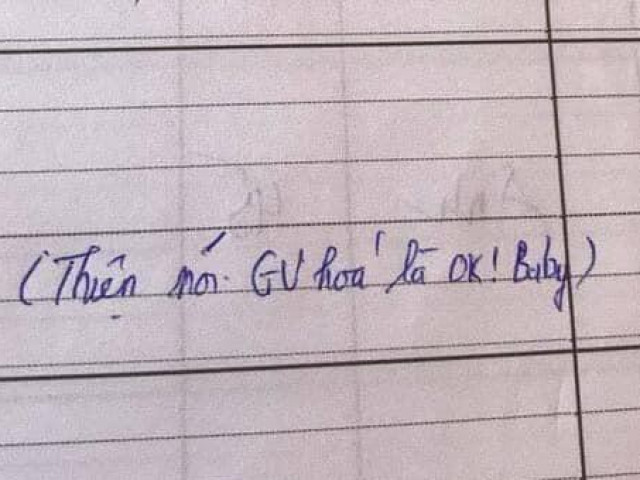 (Thiện nói. GV hoá là OK! Baby)